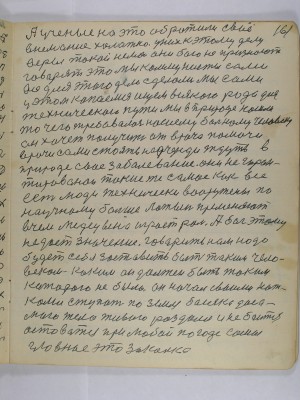 (61
А ученые на это обратили своё
внимание халатно. у них к этому делу
веры такой нема они бога не признают
говорят это мы коммунисты сами
для для этого дело сделали мы сами
у этом капаемся ищем всякого рода для
технически пути мы в природе нашли
то чего требовалось нашему больному человеку
он хочет получить от врача помочи
врачи сами стоять на очереди ждуть в
природе свое заболевание они не гаран
тированы такие те самое как все
есть люди технически вооружены по
научному больше латыни применяют
в чем медецына играет рол. А бог этому
не дает значение. говорить нам надо
будет себя заставить быть таким чело-
веком каким он должен быть таким
катораго не было он начал своими нат-
ками ступать по земле балеко даса-
мого тела живого раздели и не быть
астовати при любой погоде самая
главные это закалка